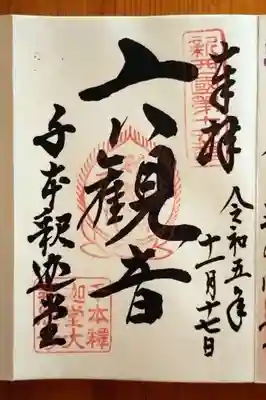 奉拝
令和五年
十一月十七日
六観音
千本釈迦堂
千本釋
迦堂大